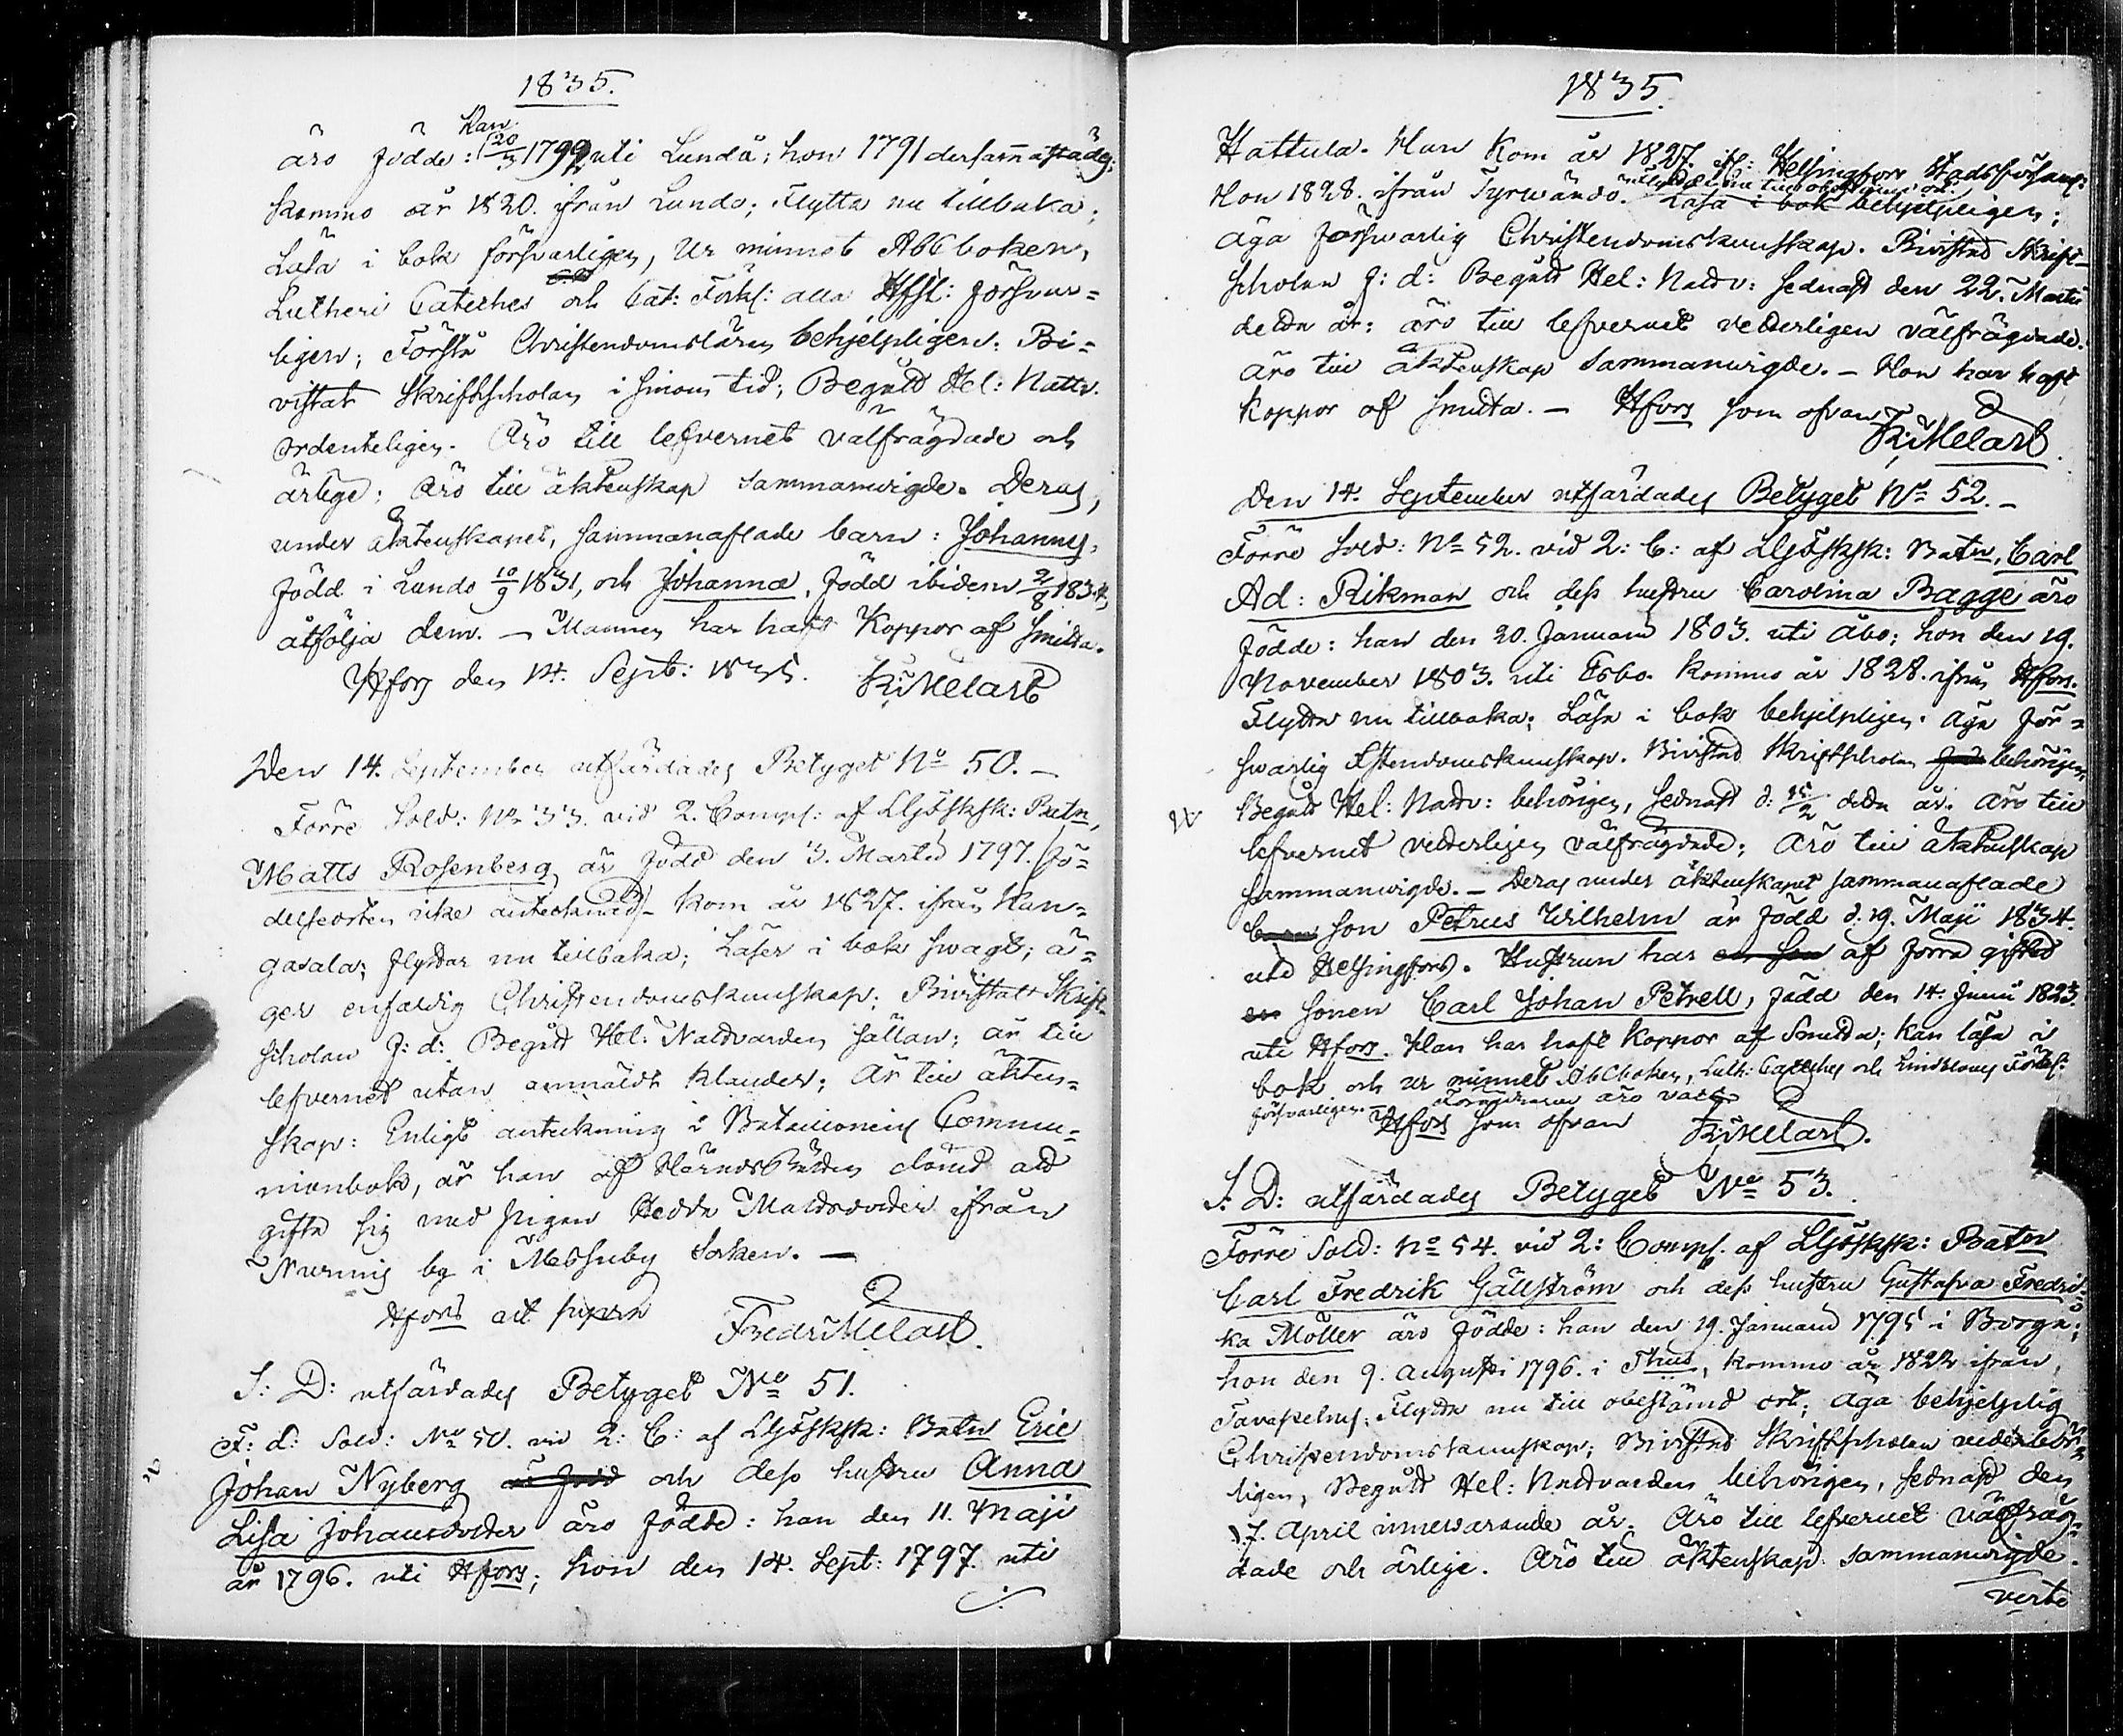 1835.
Han
äro födde: 20/3 1792 uti Lundå; hon 1791 dersammastädes;
Komma år 1820. ifrån Lundo; Flytta nu tillbaka;
Läsa i bok försvarligen, Ur minnet ABCboken,
Lutheri Cateches och Cat: Förkl: alla Hfst: försvar=
ligen; Förstå Christendomsläran behjelpligen. Bi=
vistat Skriftscholan i sinom tid; Begått Hel: Nattv.
ordenteligen. Äro till lefvernet välfrägdade och
ärlige; Äro till äktenskap sammanvigde. Deras,
under äktenskapet, sammanaflade barn: Johannes,
född i Lundo 10/9 1831, och Johanna, född ibidem 2/8 1834,
åtfölja dem. — Mannen har haft Koppor af Smitta.
Hfors den 14. Sept: 1835. Fr: Melart
Den 14. September utfärdades Betyget No 50. —
Förre Sold: No 33. vid 2. Comp: af LIjösksk: Batn,
Matts Rosenberg är född den 3. Martii 1797. (fö=
delseorten icke antecknad) — Kom år 1827. ifrån Kan=
gasala; flyttar nu tillbaka; Läser i bok swagt; ä=
ger enfaldig Christendomskunskap; Bivistat Skrift-
scholan f: d: Begått Hel: Nattvarden sällan; är till
lefvernet utan anmäldt klander; Är till äkten=
skap: Enligt anteckning i Bataillonens Commu=
nionbok, är han af HäradsRätten dömd att
gifta sig med pigan Hedda Mattsdotter ifrån
Nurmis by i Messuby Socken. —
Hfors ut supra Fredr: Melart.
S: D: utfärdades Betyget No 51.
F: d: Sold: No 50. vid 2: C: af LIjösksk: Batn Eric
Johan Nyberg är född och dess hustru Anna
Lisa Johansdotter äro födde: han den 11. Maji
år 1796. uti Hfors; hon den 14. Sept: 1797. uti
1835.
Hattula. Han Kom år 1827. ifr: Helsingfors Stadsförsaml:
Hon 1828. ifrån Tyrwändö. Flytta nu till obestämd ort.
Läsa i bok behjelpligen;
äga försvarlig Christendomskunskap. Bivistad Skrift-
scholan f: d: Begått Hel: Nattv: sednast den 22. Martii
detta år: äro till lefvernet vetterligen välfrägdade.
Äro till äktenskap sammanvigde. — Hon har haft
Koppor af Smitta. — Hfors som ofvan
Fr: Melart.
Den 14. September utfärdades Betyget No 52. —
Förre Sold: No 52. vid 2: C: af LIjösksk: Batn, Carl
Ad: Rikman och dess hustru Carolina Bagge äro
födde: han den 20. Januarii 1803. uti Åbo; hon den 19.
November 1803. uti Esbo. Komma år 1828. ifrån Hfors.
Flytta nu tillbaka; Läsa i bok behjelpligen. Äga för=
svarlig Xstendomskunskap. Bivistad Skriftscholan behörigen,
Begått Hel: Nattv: behörigen, sednast d: 15/2 detta år. Äro till
lefvernet vetterligen välfrägdade; Äro till äktenskap
sammanvigde. — Deras under äktenskapet sammanaflade
barn son Petrus Wilhelm är född d. 19. Maji 1834.
uti Helsingfors. Hustrun har en son af förra giftet
en sonen Carl Johan Petrell, född den 14. Junii 1823.
uti Hfors. Han har haft Koppor af Smitta; Kan läsa i
bok och ur minnet AbCboken, Luth: Cateches och Lindbloms Förkl:
försvarligen — äro vacc:
Hfors som ofvan Fr: Melart.
S: D: utfärdades Betyget No 53.
Förre Sold: No 54. vid 2: Comp: af LIjösksk: Batn
Carl Fredrik Gällström och dess hustru Gustafva Fredri-
ka Möller äro födde: han den 19. Januarii 1795 i Borgå;
hon den 9. Augusti 1796. i Thus, komma år 1822 ifrån
Tavastehus; Flytta nu till obestämd ort; äga behjelplig
Christendomskunskap; Bivistad Skriftscholan vederbör-
ligen, Begått Hel: Nattvarden behörigen, sednast den
17. April innevarande år. Äro till lefvernet välfräg=
dade och ärlige. Äro till äktenskap sammanvigde.
verte